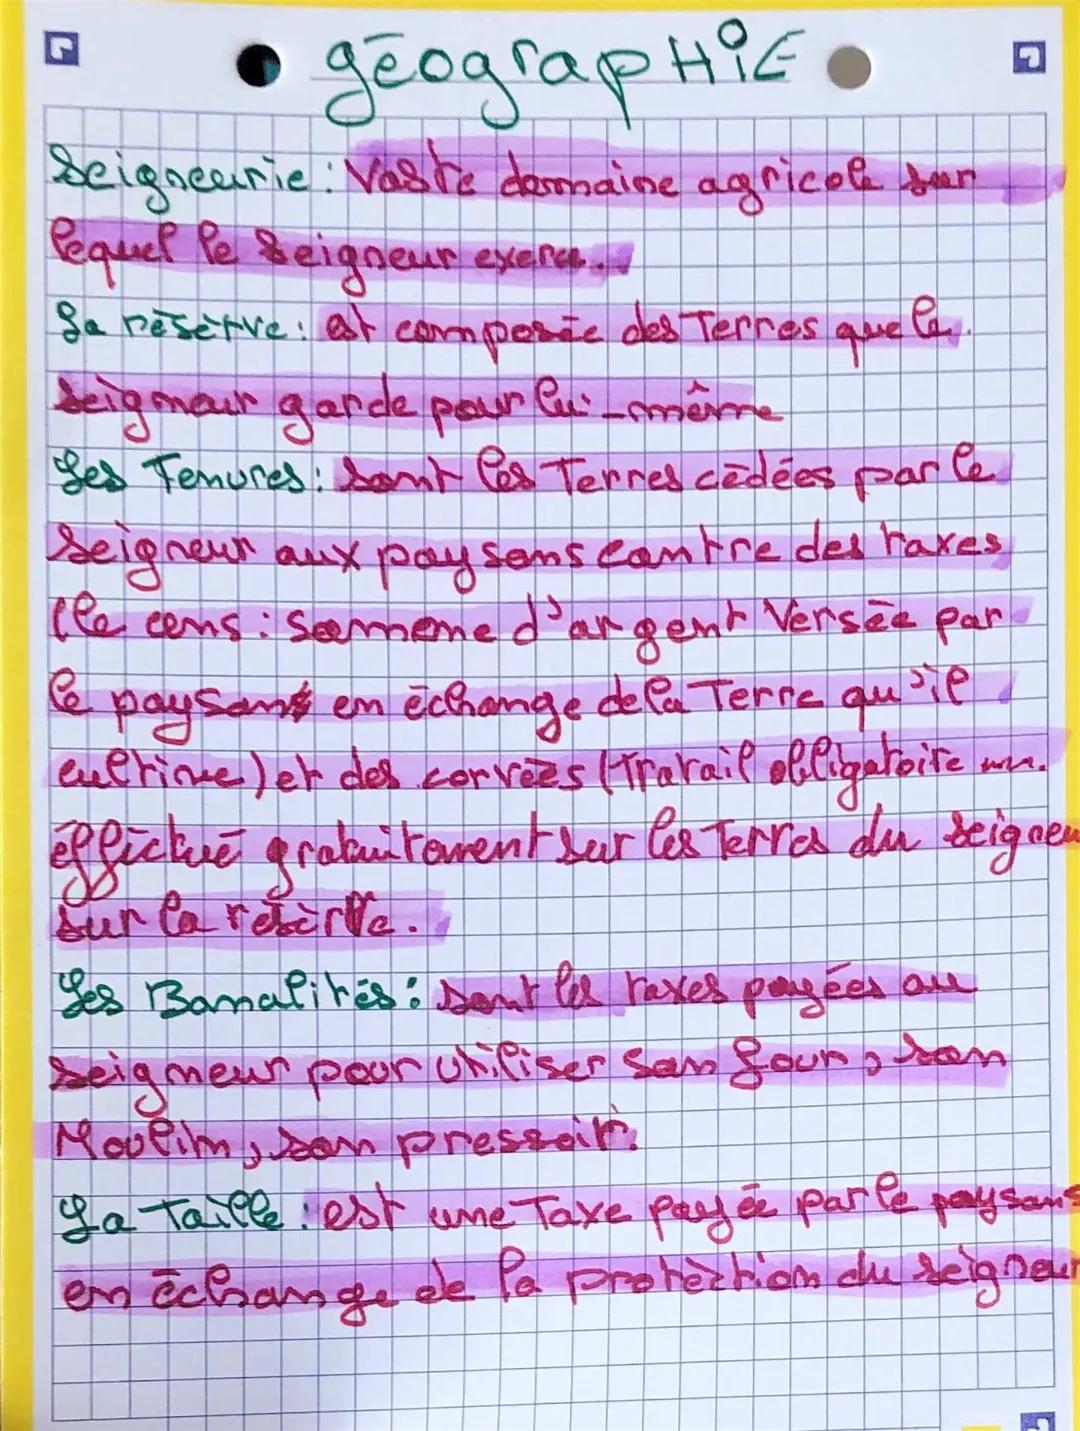 géographie
Seigneurie : Vaste domaine agricole sur
lequel le Seigneur exerce.
La résèrve : est composée des Terres que le
seigneur garde pour lui-même
Les Tenures : sont les Terres cédées par le
seigneur aux paysans contre des taxes
(le cens : somme d'argent Versée par
le paysan en échange de la Terre qu'il
cultive) et des corvées (Travail obligatoire
éffèctué gratuitement sur les Terres du seigneu
sur la resèrve.
Les Banalités : sont les taxes payées au
seigneur pour utiliser son four, son
Moulin, son pressoir.
La Taille : est une Taxe payée par le paysans
en échange de la protèction du seigneur